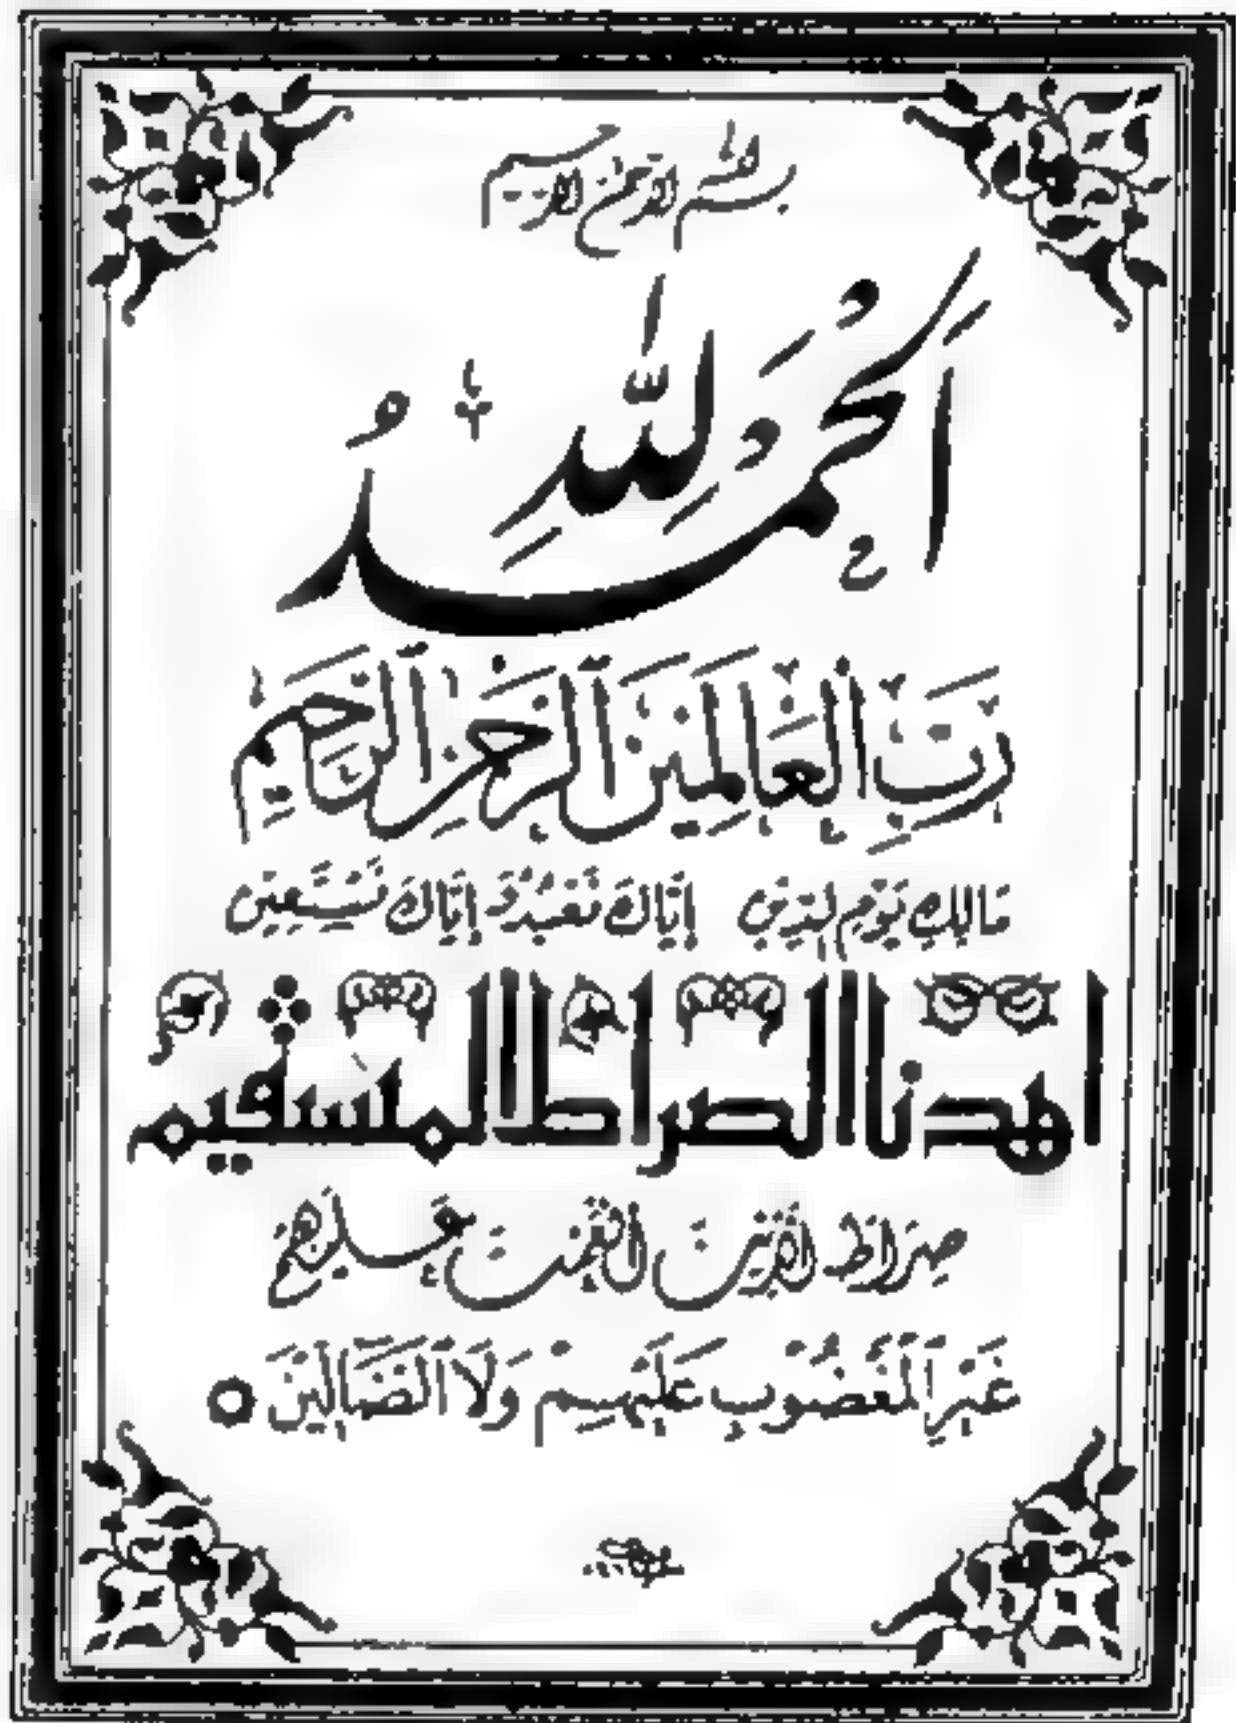 بسم الله الرحمن الرحيم
اَلْحَمْدُ لِلّٰهِ
رَبِّ الْعَالَمِيْنَ اَلرَّحْمٰنِ اَلرَّحِيْمِ
مَالِكِ يَوْمِ الدِّيْنِ إِيَّاكَ نَعْبُدُ وَ إِيَّاكَ نَسْتَعِيْنَ
اهدنا الصراط المستقيم
صِرَاطَ الَّذِيْنَ اَنْعَمْتَ عَلَيْهِمْ
غَيْرِ الْمَغْضُوْبِ عَلَيْهِمْ وَلَا الضَّالِّيْنَ